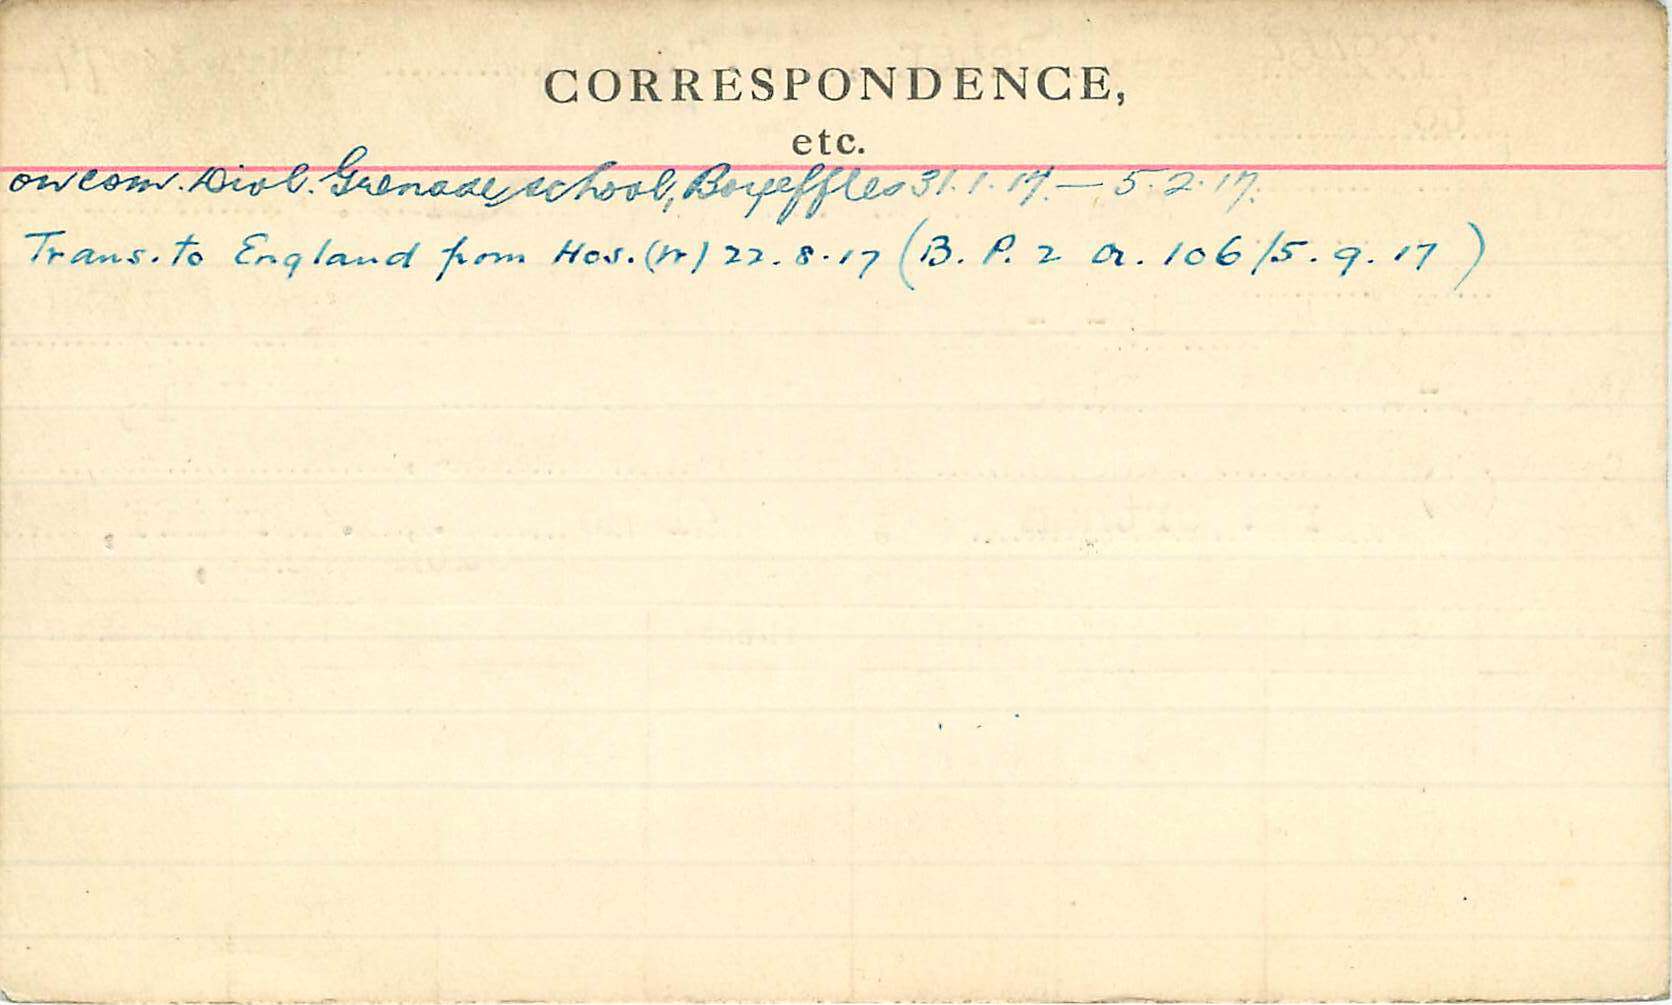 CORRESPONDENCE,
etc.
on com. Divl. Grenade school, Boyeffles 31.1.17. — 5.2.17.
Trans. to England from Hos. (W) 22.8.17 (B.P. 2 Or. 106/5.9.17)